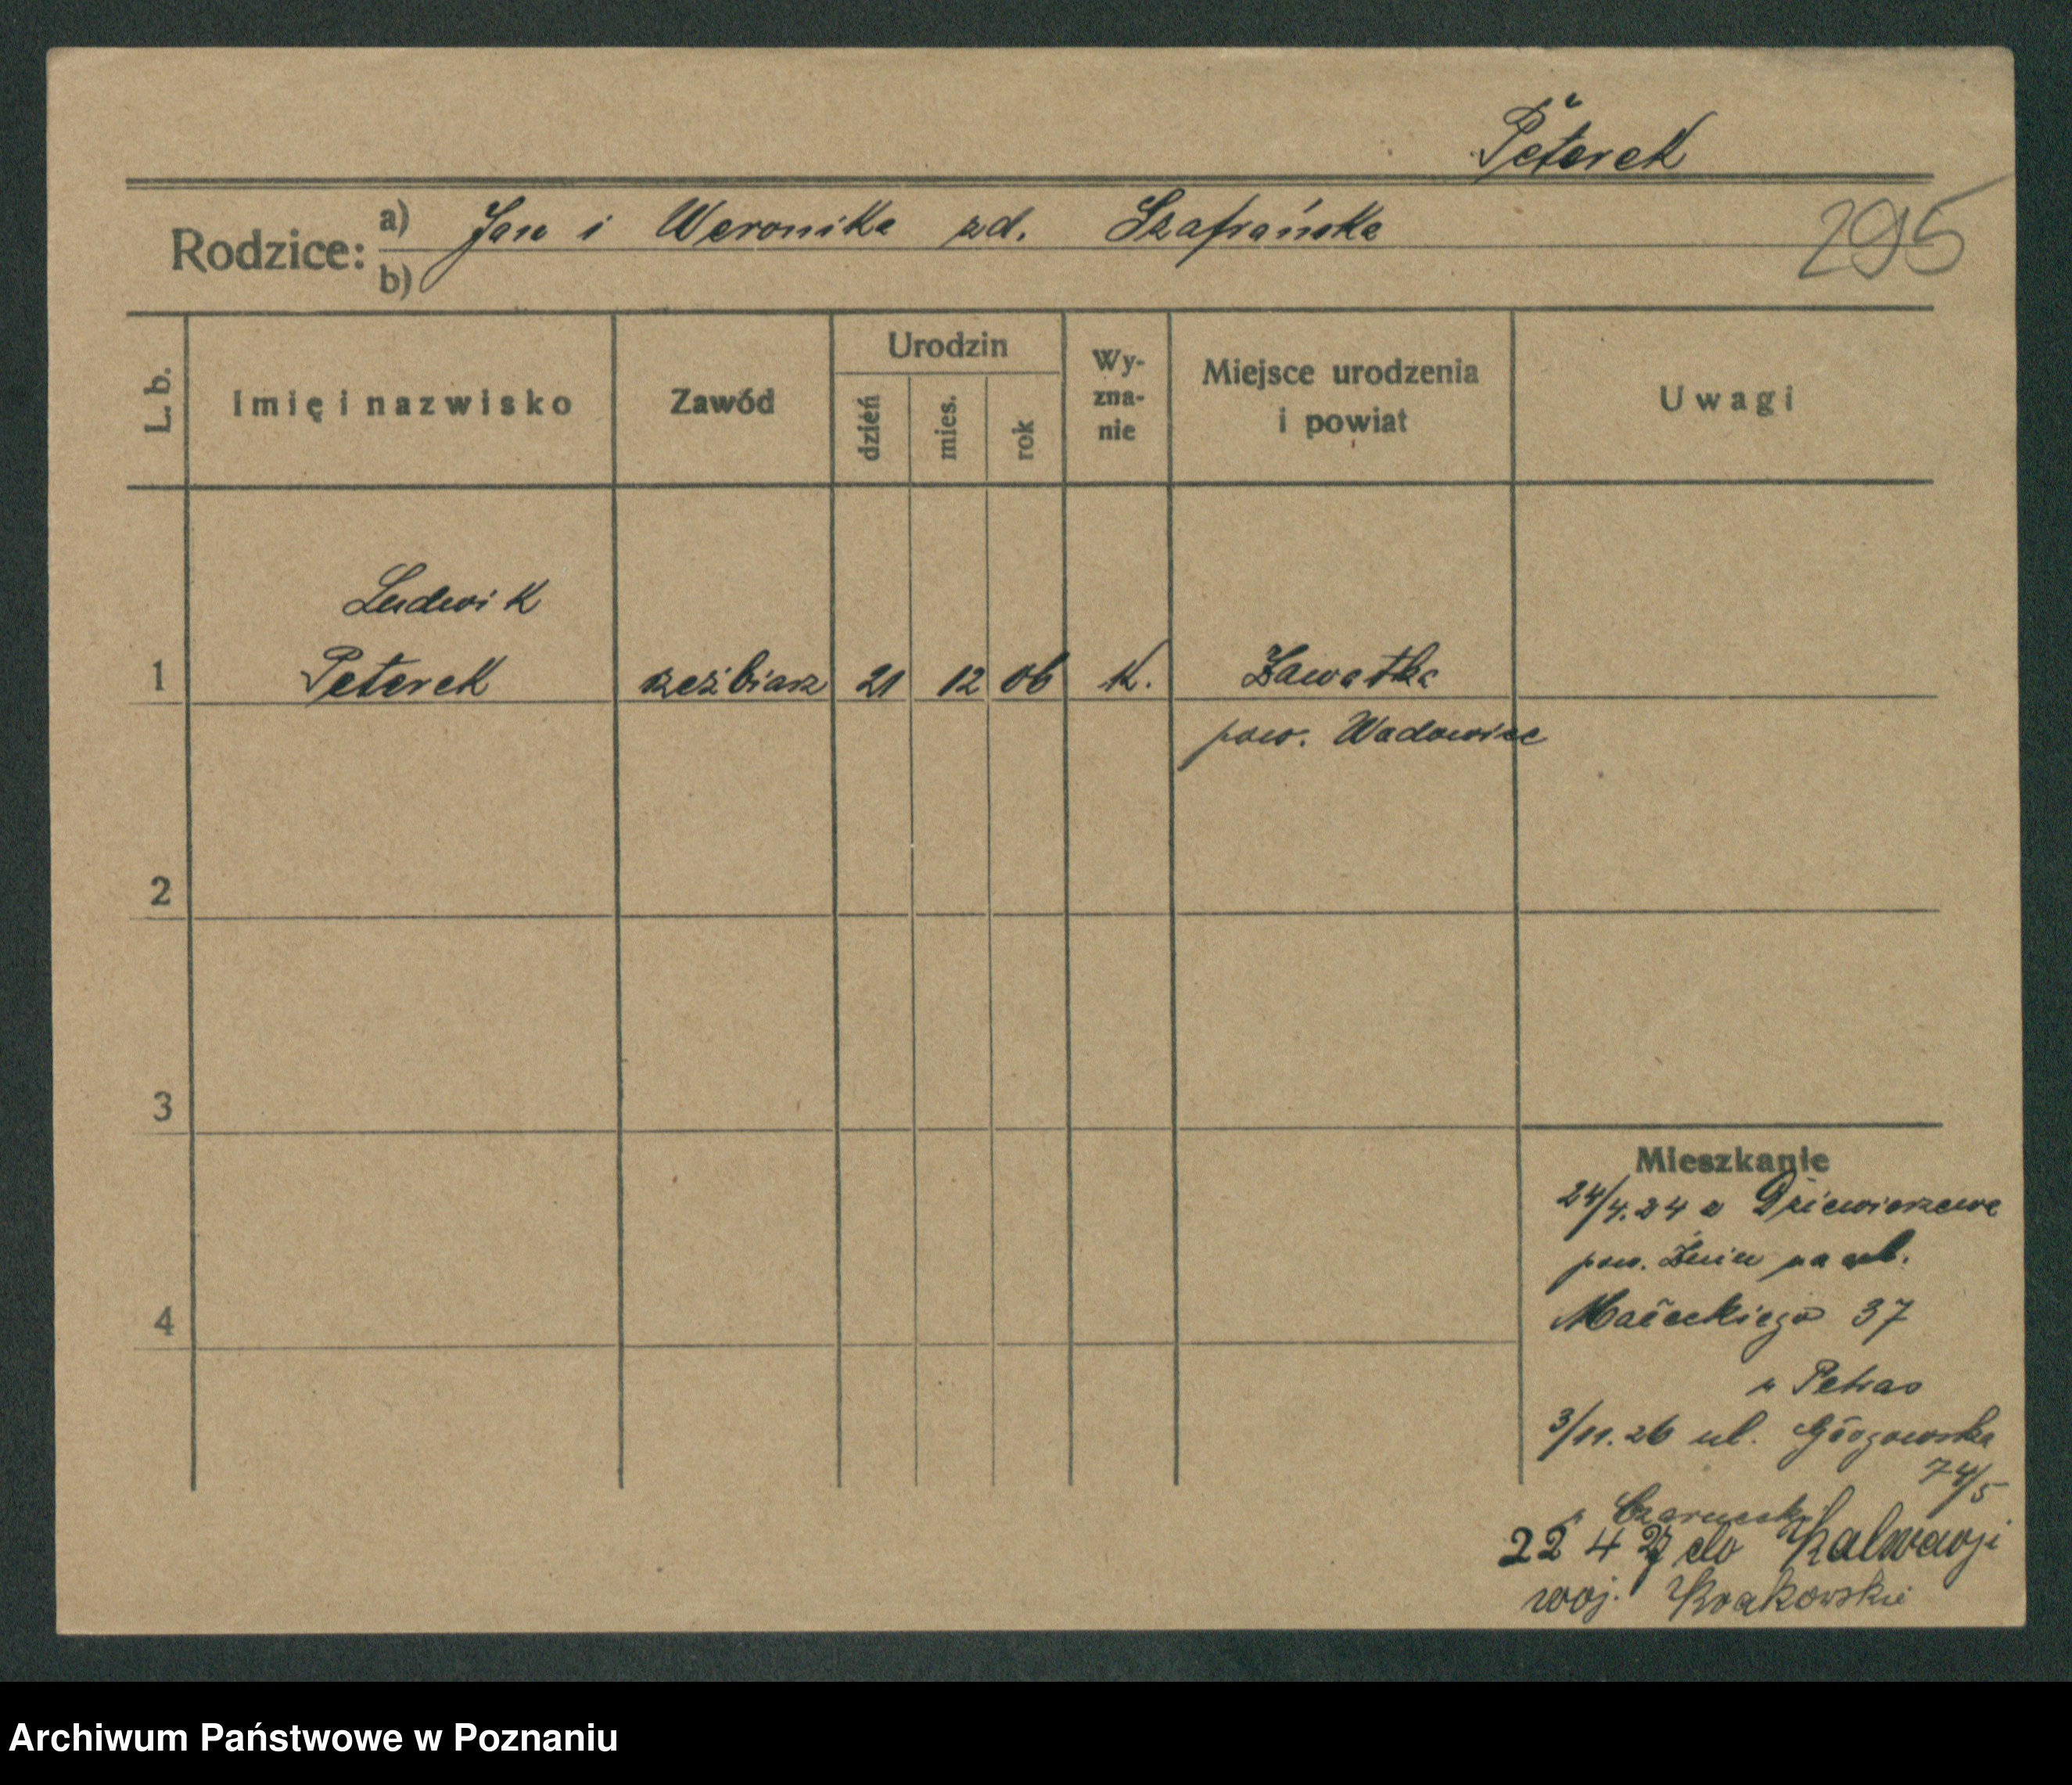 Peterek
Rodzice: a) Jan i Weronika zd. Szafrańska
b)
295
L. b.
Imię i nazwisko
Zawód
Urodzin
dzień
mies.
rok
Wy-
zna-
nie
Miejsce urodzenia
i powiat
Uwagi
Ludwik
1 Peterek rzeźbiarz 21 12 06 K. Zawatka
pow. Wadowice
2
3
4
Mieszkanie
24/4.24 z Dziewierzewa
pow. Żnin na ul.
Małeckiego 37
u Petras
3/11.26 ul. Głogowska
74/5
u Czarnecki
22 4 27 do Kalwarji
woj. Krakowskie
Archiwum Państwowe w Poznaniu